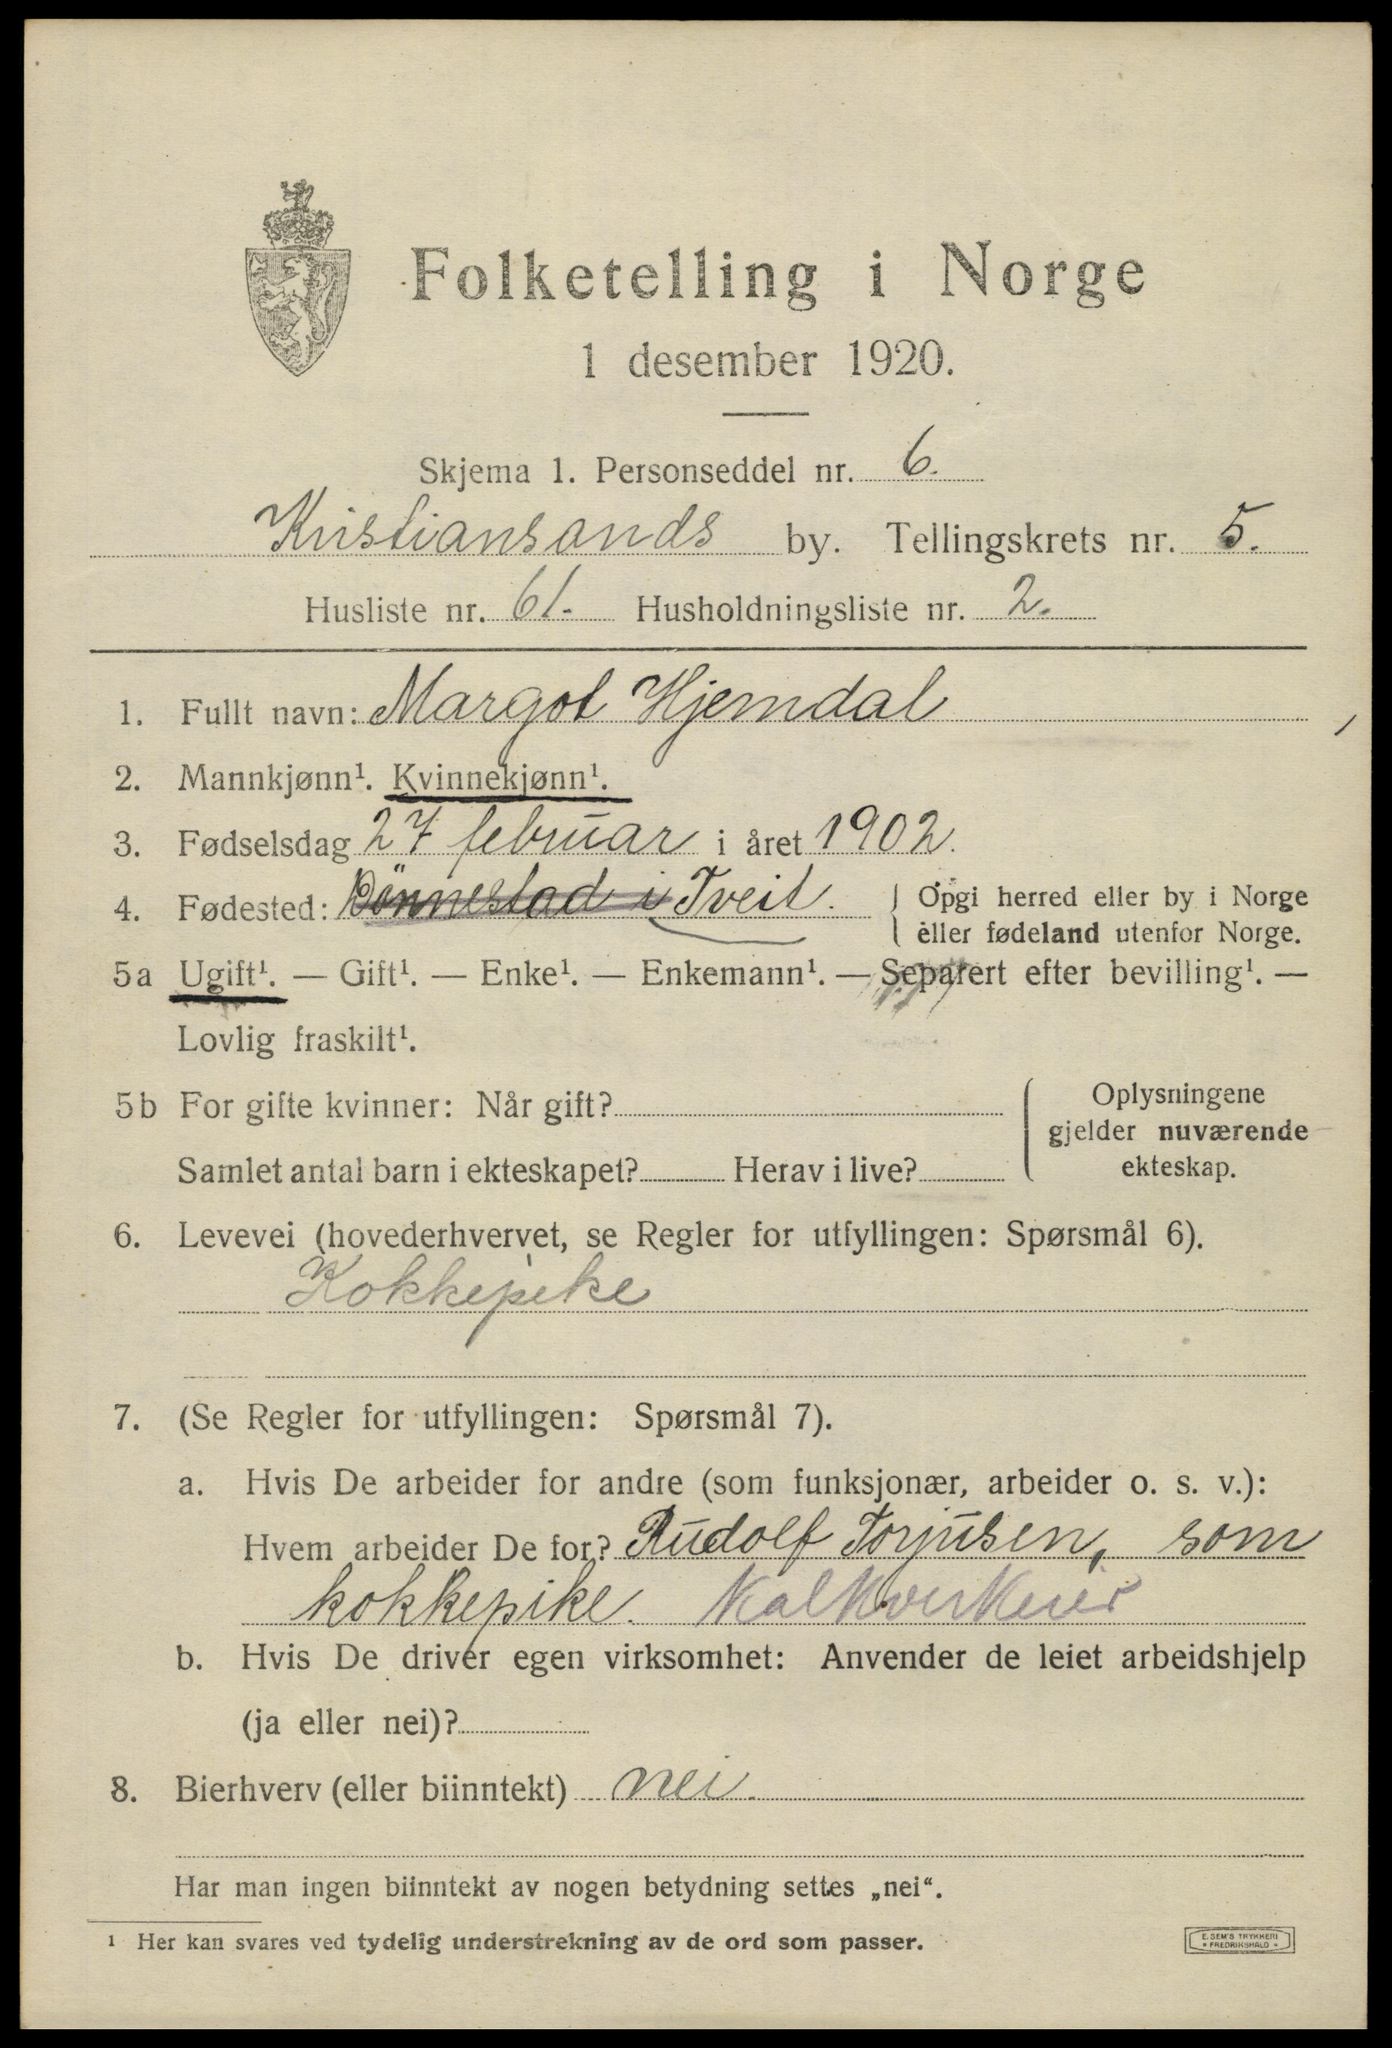 Folketelling i Norge
1 desember 1920.
Skjema 1. Personseddel nr. 6.
Kristiansands by. Tellingskrets nr. 5.
Husliste nr. 61. Husholdningsliste nr. 2.
1. Fullt navn: Margot Hjemdal
2. Mannkjønn¹. Kvinnekjønn¹.
3. Fødselsdag 27 februar i året 1902.
4. Fødested: Dönnestad i Tveit. Opgi herred eller by i Norge
eller fødeland utenfor Norge.
5a Ugift¹. — Gift¹. — Enke¹. — Enkemann¹. — Separert efter bevilling¹. —
Lovlig fraskilt¹.
5b For gifte kvinner: Når gift? Oplysningene
gjelder nuværende
ekteskap.
Samlet antal barn i ekteskapet? Herav i live?
6. Levevei (hovederhvervet, se Regler for utfyllingen: Spørsmål 6).
Kokkepike
7. (Se Regler for utfyllingen: Spørsmål 7).
a. Hvis De arbeider for andre (som funksjonær, arbeider o. s. v.):
Hvem arbeider De for? Rudolf Torjusen, som
kokkepike. Kalkverkeier
b. Hvis De driver egen virksomhet: Anvender de leiet arbeidshjelp
(ja eller nei)?
8. Bierhverv (eller biinntekt) nei.
Har man ingen biinntekt av nogen betydning settes „nei“.
¹ Her kan svares ved tydelig understrekning av de ord som passer.
E. SEM'S TRYKKERI
* FREDRIKSHALD *